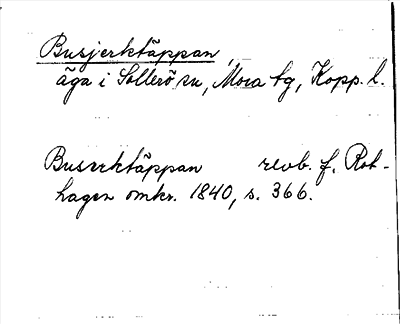 Busjerktäppan,
äga i Sollerö sn, Mora tg, Kopp. l.
Buserktäppan revb. f. Rot-
hagen omkr. 1840, s. 366.